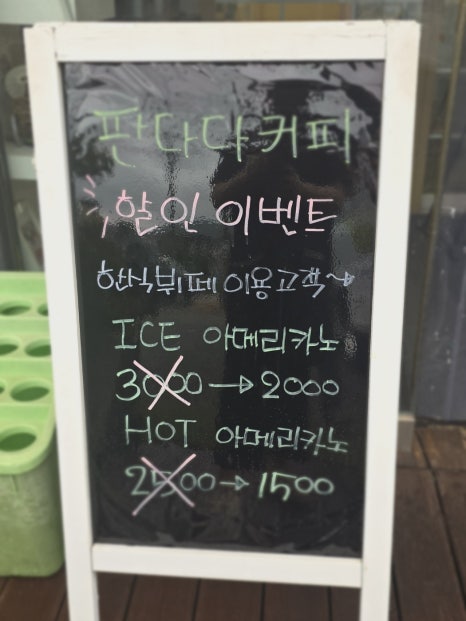 판다다커피
할인 이벤트
한식뷔페 이용고객~
ICE 아메리카노
3000→2000
HOT 아메리카노
2500→1500